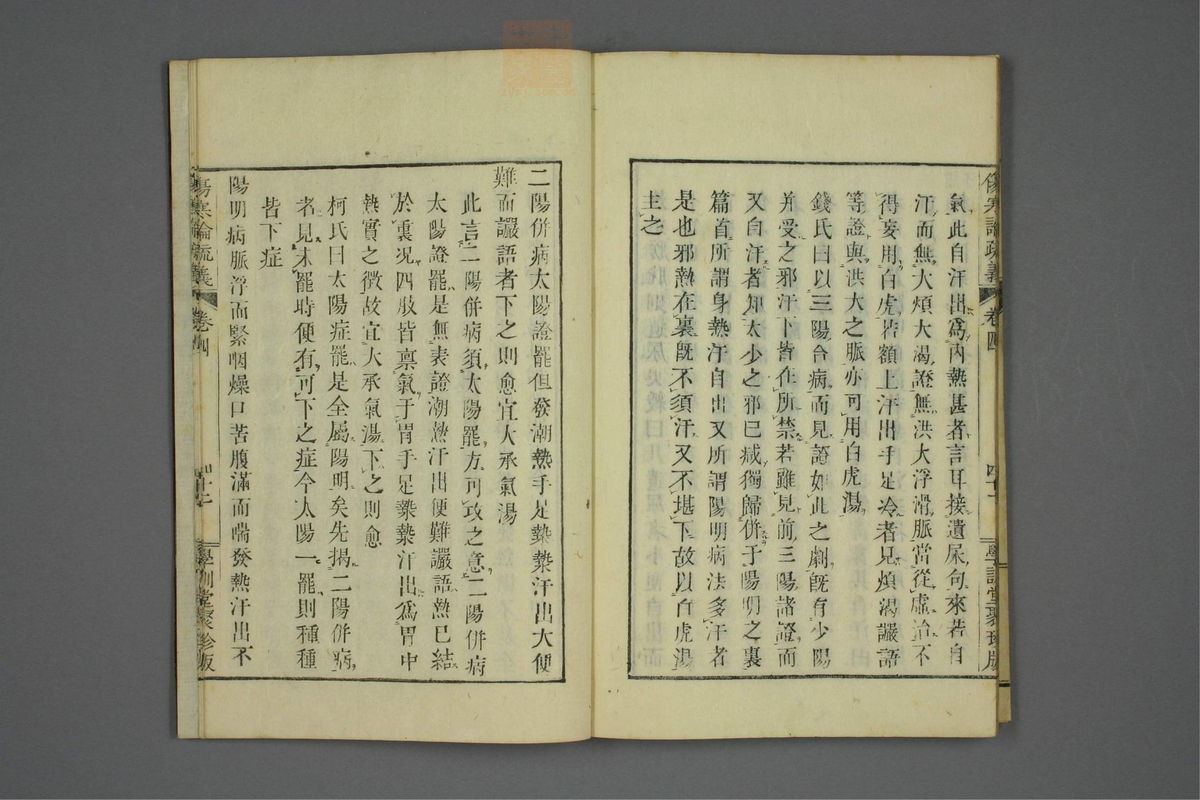 傷寒論疏義
卷四
氣此自汗出爲內熱甚者言耳接遺尿句來若自
汗而無大煩大渴證無洪大浮滑脈當從虛治不
得妄用白虎若額上汗出手足冷者見煩渴讝語
等證與洪大之脈亦可用白虎湯
錢氏曰以三陽合病而見證如此之劇旣有少陽
幷受之邪汗下皆在所禁若雖見前三陽諸證而
又自汗者知太少之邪已減獨歸併于陽明之裏
篇首所謂身熱汗自出又所謂陽明病法多汗者
是也邪熱在裏旣不須汗又不堪下故以白虎湯
主之
二陽併病太陽證罷但發潮熱手足漐漐汗出大便
難而讝語者下之則愈宜大承氣湯
此言二陽併病須太陽罷方可攻之意二陽併病
太陽證罷是無表證潮熱汗出便難讝語熱已結
於裏況四肢皆稟氣于胃手足漐漐汗出爲胃中
熱實之徵故宜大承氣湯下之則愈
柯氏曰太陽症罷是全屬陽明矣先揭二陽併病
者見未罷時便有可下之症今太陽一罷則種種
皆下症
陽明病脈浮而緊咽燥口苦腹滿而喘發熱汗出不
傷寒論疏義
卷四
學訓堂聚珍版